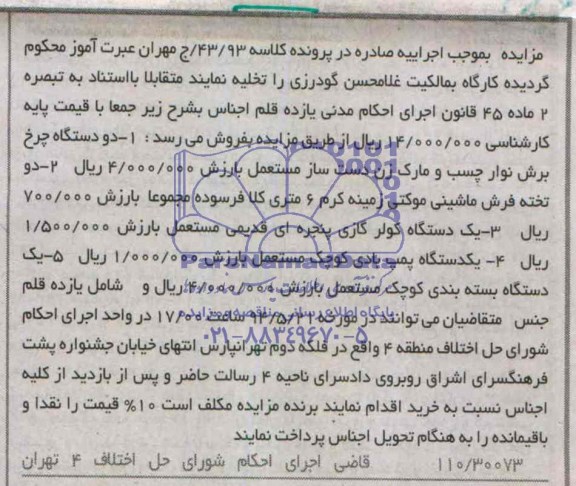 مزایده بموجب اجراییه صادره در پرونده کلاسه ۴۳/۹۳/ج مهران عبرت آموز محکوم
گردیده کارگاه بمالکیت غلامحسن گودرزی را تخلیه نمایند متقابلا بااستناد به تبصره
۲ ماده ۴۵ قانون اجرای احکام مدنی یازده قلم اجناس بشرح زیر جمعا با قیمت پایه
کارشناسی ۱۴/۰۰۰/۰۰۰ ریال از طریق مزایده بفروش می رسد : ۱-دو دستگاه چرخ
برش نوار چسب و مارک زن دست ساز مستعمل بارزش ۴/۰۰۰/۰۰۰ ریال ۲-دو
تخته فرش ماشینی موکتی زمینه کرم ۶ متری کلا فرسوده مجموعا بارزش ۷۰۰/۰۰۰
ریال ۳-یک دستگاه کولر گازی پنجره ای قدیمی مستعمل بارزش ۱/۵۰۰/۰۰۰
ریال ۴- یکدستگاه پمپ بادی کوچک مستعمل بارزش ۱/۰۰۰/۰۰۰ ریال ۵-یک
دستگاه بسته بندی کوچک مستعمل بارزش ۴/۰۰۰/۰۰۰ ریال و شامل یازده قلم
جنس متقاضیان می توانند در مورخه ۹۳/۵/۲۱ ساعت ۱۷/۰۰ در واحد اجرای احکام
شورای حل اختلاف منطقه ۴ واقع در فلکه دوم تهرانپارس انتهای خیابان جشنواره پشت
فرهنگسرای اشراق روبروی دادسرای ناحیه ۴ رسالت حاضر و پس از بازدید از کلیه
اجناس نسبت به خرید اقدام نمایند برنده مزایده مکلف است ۱۰% قیمت را نقدا و
باقیمانده را به هنگام تحویل اجناس پرداخت نمایند
۱۱۰/۳۰۰۷۳ قاضی اجرای احکام شورای حل اختلاف ۴ تهران
ParsNamadData
پایگاه اطلاع رسانی مناقصه و مزایده
۰۲۱-۸۸۳۴۹۶۷۰-۵